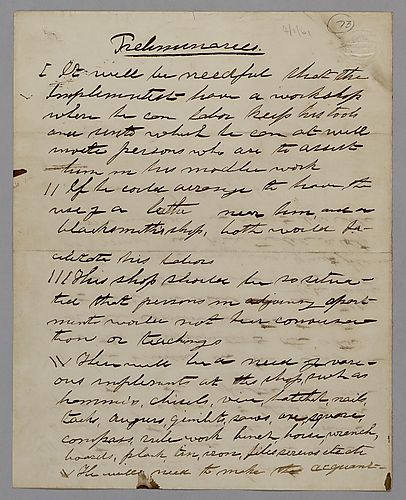 73
Preliminaries.
I It will be needful that the
Implementist have a workshop
where he can labor keep his tools
and unto which he can at will
invite persons who are to assist
him in his model work
II If he could arrange to have the
use of a lathe near him, and a
blacksmiths shop, both would fa-
cilitate his labors
III This shop should be so situa-
ted that persons in adjoining apart-
ments would not hear conversa-
tion or teachings
There will be a need of vari-
ous implements at the shop, such as
hammer, chisels, vice, hatchet, nails,
tacks, augurs, gimlets, saws, axe, square,
compass, rule work bench, horse, wrench,
boards, plank tin, iron, files screws etcete
He will need to make the acquaint-